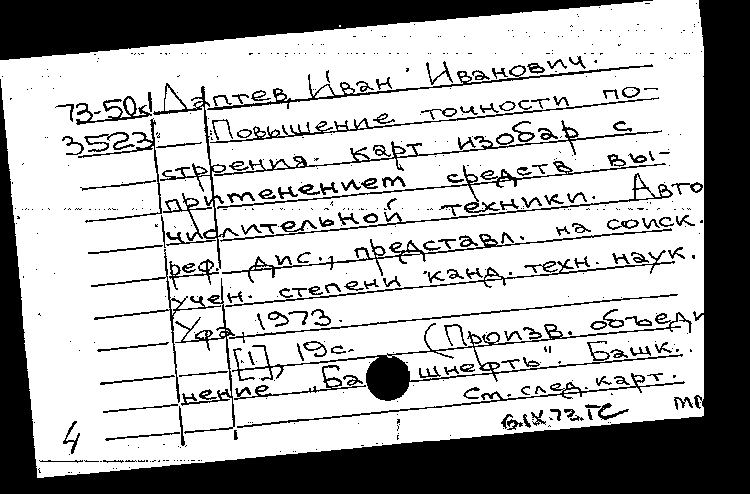 73-50к Лаптев, Иван Иванович.
3523 Повышение точности по-
строения карт изобар с
применением средств вы-
числительной техники. Авто
реф. дис., представл. на соиск.
учен. степени канд. техн. наук.
Уфа, 1973.
[1], 19 с. (Произв. объеди
нение „Башнефть". Башк.
См. след. карт.
4 6.IX.73.ГС